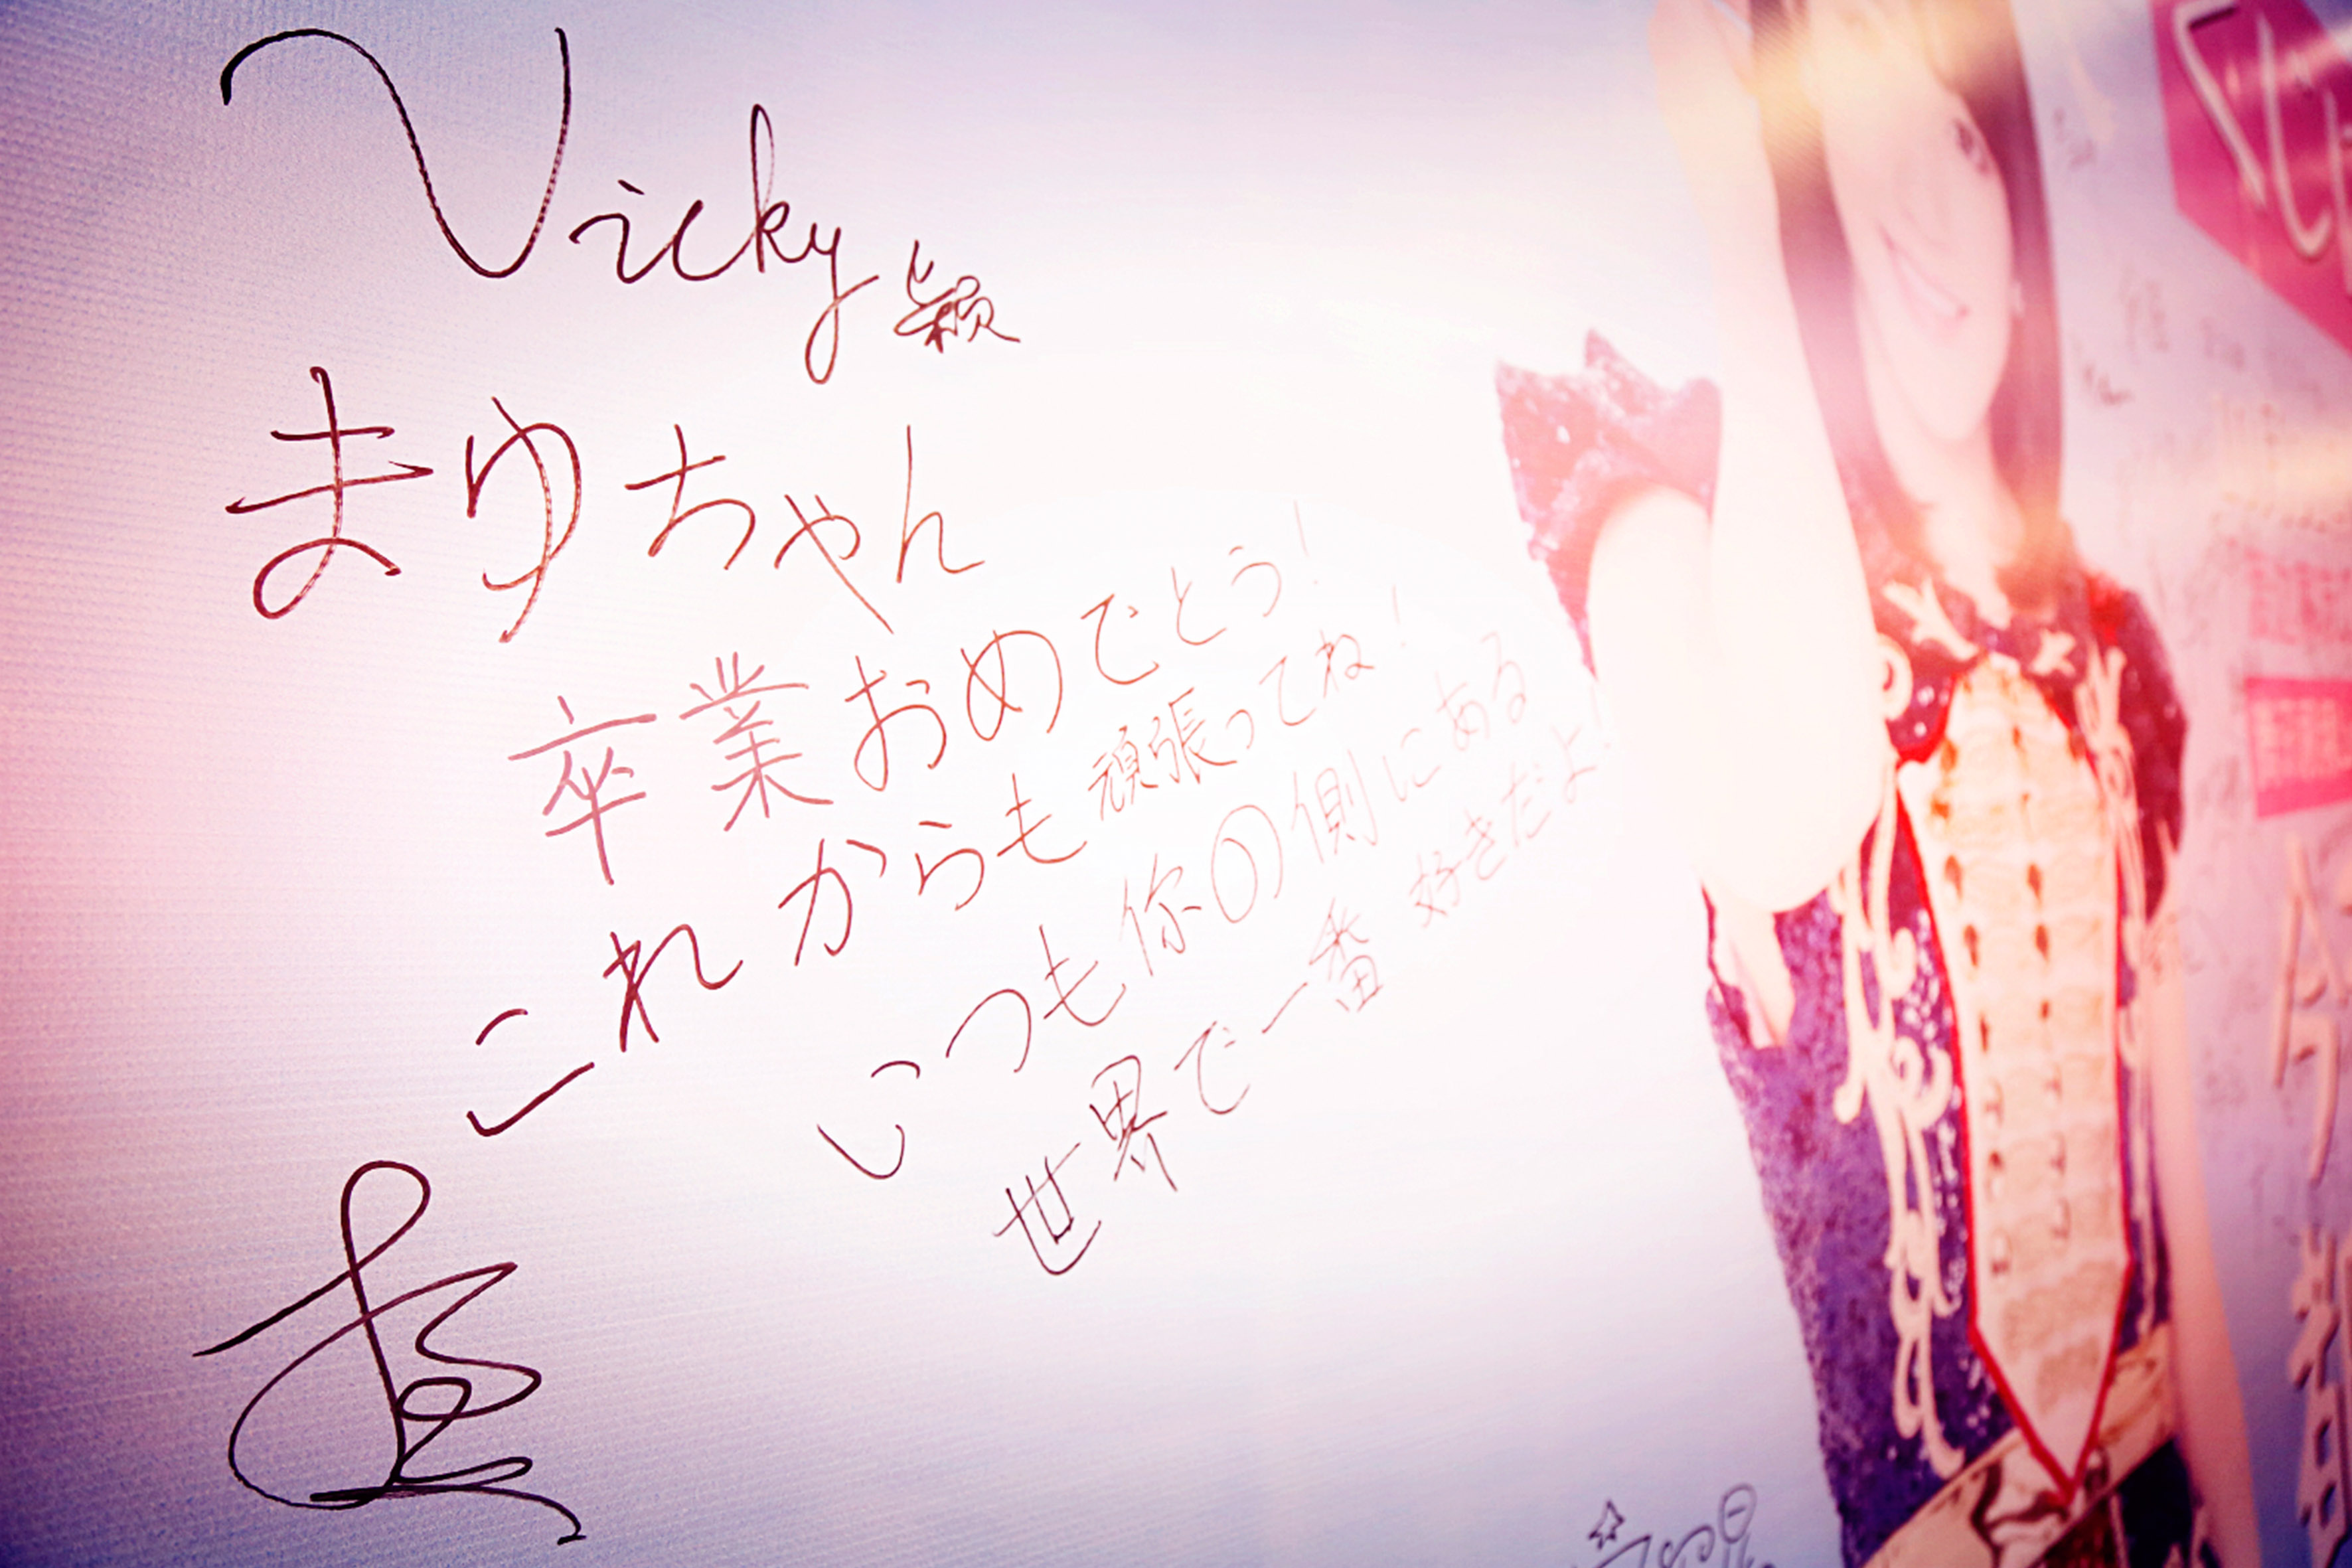 Vicky 颖
まゆちゃん
卒業おめでとう!
これからも頑張ってね!
いつも你の側にある
世界で一番 好きだよ!